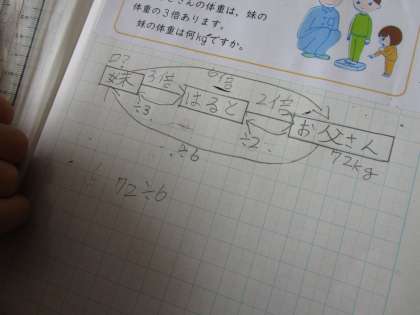 さんの体重は、妹の
体重の3倍あります。
妹の体重は何kgですか。
□?
6倍
妹
3倍
はると
2倍
お父さん
÷3
÷2
72kg
÷6
72÷6